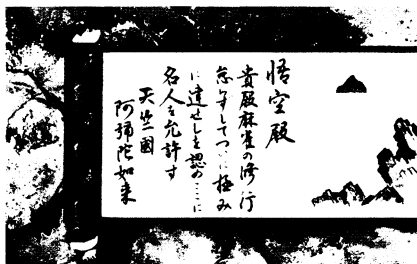 悟空殿
貴殿麻雀の修行
怠らずしてついに極み
に達せしと認め……に
名人を允許す
天竺國
阿彌陀如来